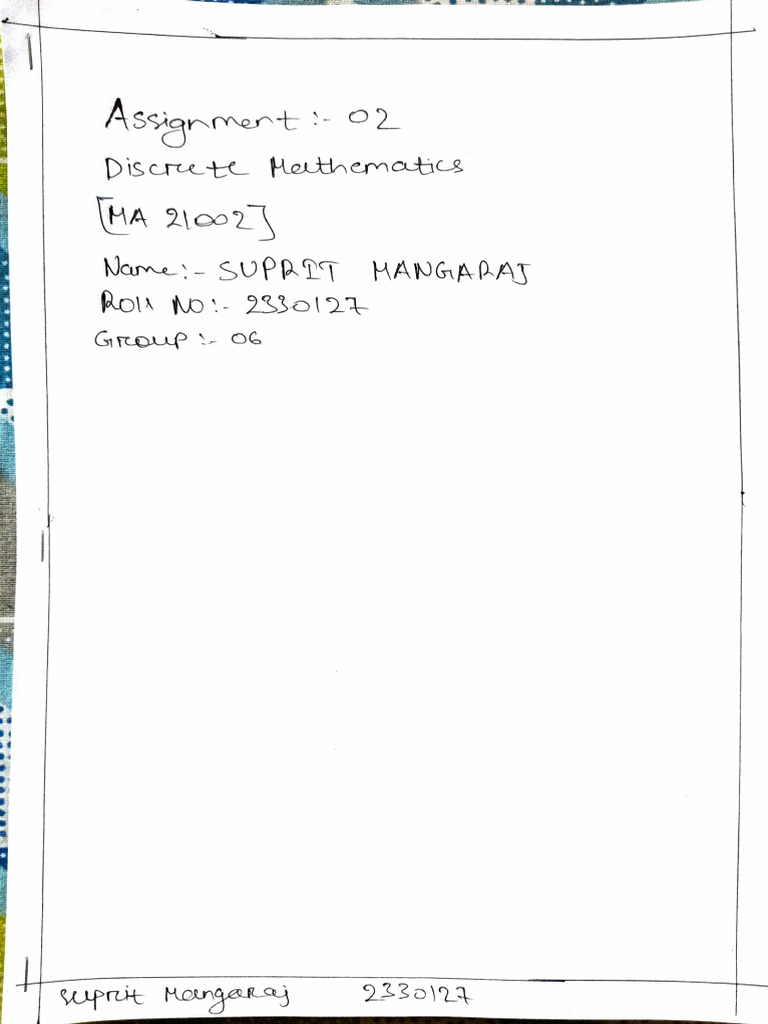 Assignment :- 02
Discrete Mathematics
[MA 21002]
Name:- SUPRIT MANGARAJ
Roll No:- 2330127
Group :- 06
Suprit Mangaraj 2330127